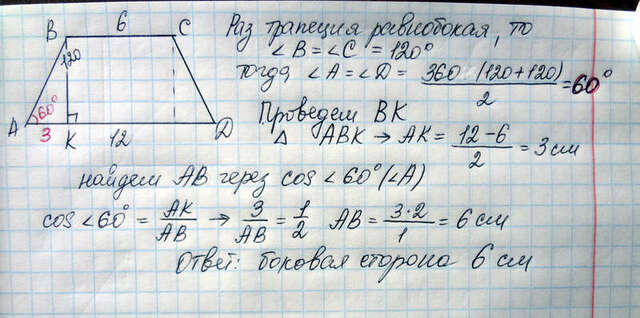 B 6 C
120
60°
A 3 K 12 D
Раз трапеция равнобокая, то
∠B = ∠C = 120°
тогда ∠A = ∠D = 360 (120+120) / 2 = 60°
Проведем BK
Δ ABK → AK = 12-6 / 2 = 3 см
найдем AB через cos ∠60° (∠A)
cos ∠60° = AK / AB → 3 / AB = 1 / 2 AB = 3·2 / 1 = 6 см
Ответ: боковая сторона 6 см